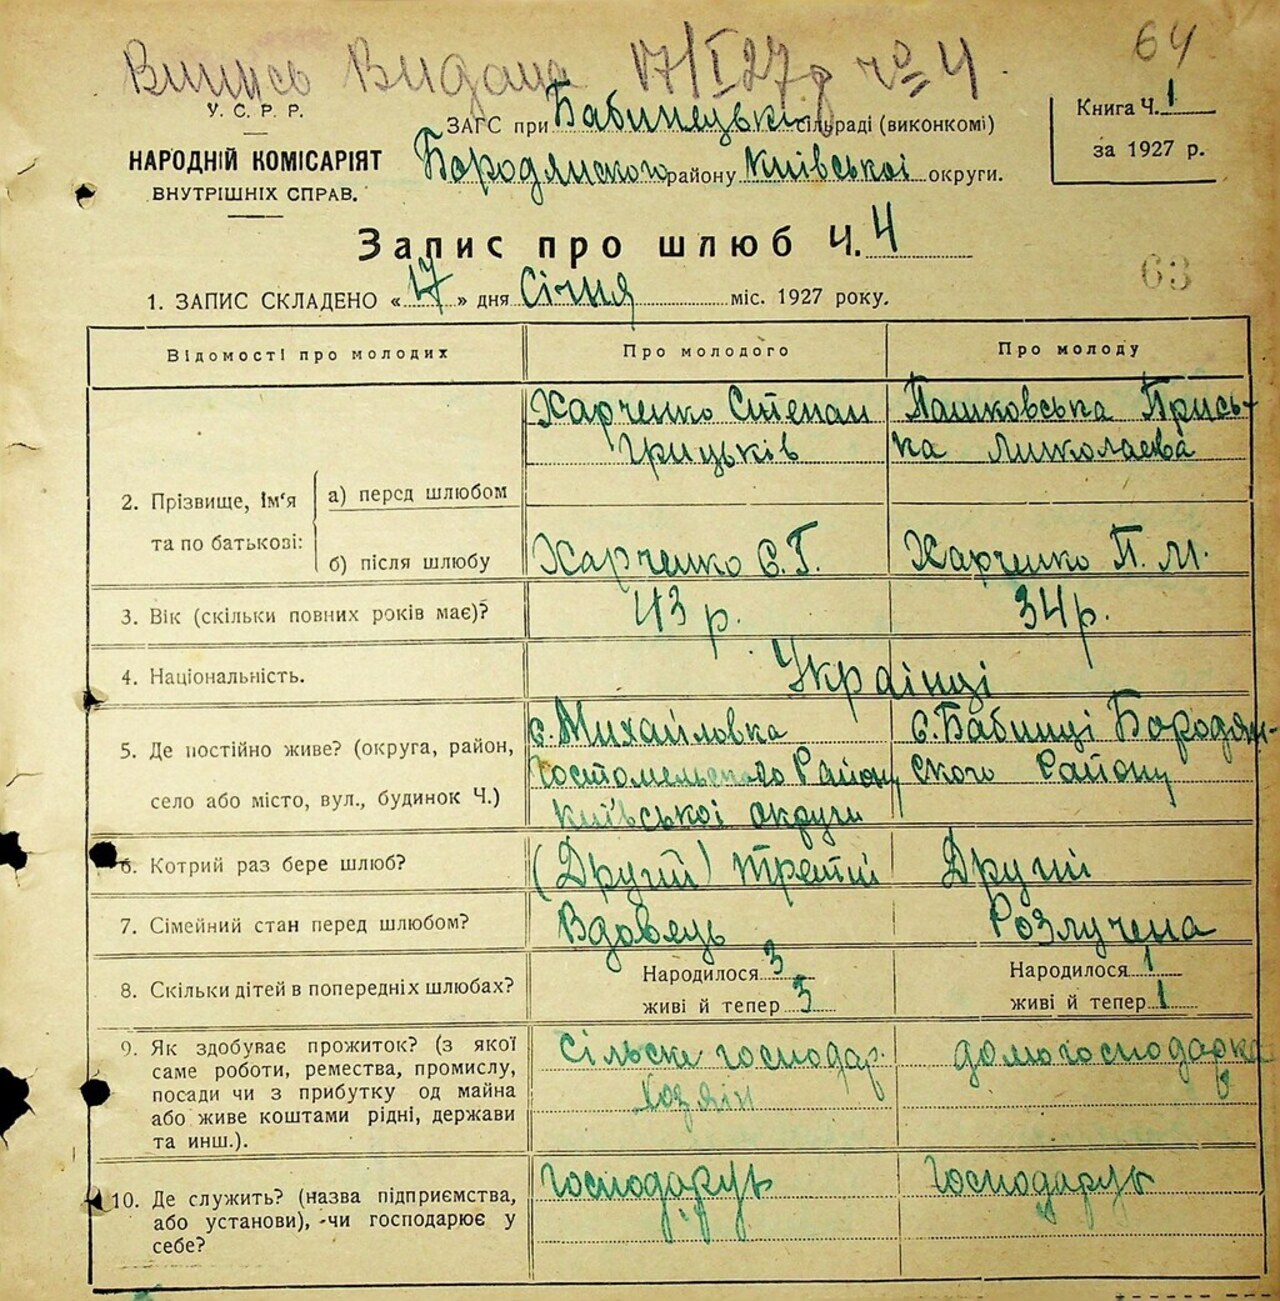 Випись Видана 17/I 27 р № 4.
64
У. С. Р. Р.
НАРОДНІЙ КОМІСАРІЯТ
ВНУТРІШНІХ СПРАВ.
ЗАГС при Бабинецьки сільраді (виконкомі)
Бородянского району Київськоі округи.
Книга Ч. 1
за 1927 р.
Запис про шлюб Ч. 4
63
1. ЗАПИС СКЛАДЕНО «17» дня Січня міс. 1927 року.
Відомості про молодих
Про молодого
Про молоду
2. Прізвище, Ім'я та по батькові:
а) перед шлюбом
Харченко Степан
Грицьків
Пашковська Прись-
ка Миколаєва
б) після шлюбу
Харченко С. Г.
Харченко П. М.
3. Вік (скільки повних років має)?
43 р.
34 р.
4. Національність.
Украінці
5. Де постійно живе? (округа, район,
село або місто, вул., будинок Ч.)
с. Михайловка
Гостомельского Району
Київськоі округи
с. Бабинці Бородян-
ского Району
6. Котрий раз бере шлюб?
(Другий) третій
Другий
7. Сімейний стан перед шлюбом?
Вдовець
Розлучена
8. Скільки дітей в попередніх шлюбах?
Народилося 3
живі й тепер 3
Народилося 1
живі й тепер 1
9. Як здобуває прожиток? (з якої
саме роботи, ремества, промислу,
посади чи з прибутку од майна
або живе коштами рідні, держави
та инш.).
Сільске господар.
хозяін
домогосподарка
10. Де служить? (назва підприємства,
або установи), -чи господарює у
себе?
Господарує
Господарує